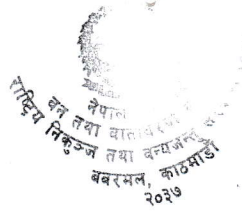 नेपाल
वन तथा वातावरण
राष्ट्रिय निकुञ्ज तथा वन्यजन्तु
बबरमहल, काठमाडौं
२०३७